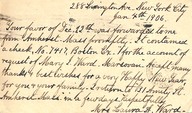 288 Lexington Ave. New York City
Jan. 4th 1906.
Your favor of Dec. 13th was forwarded to me
from Amherst Mass promptly. It contained
a check, No. 7917, Boston for the account
request of Mary S. Ward, Marsovan. Accept many
thanks & best wishes for a very Happy New Year,
for you & your family. I return to
Amherst Mass in a few days. Respectfully
Mrs Laura H. Ward.